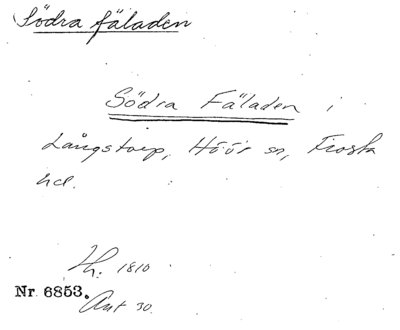 Södra fäladen
Södra Fäladen i
Långstorp, Höör sn, Frosta
hd.
Th. 1810
Nr. 6853.
Ant 30.